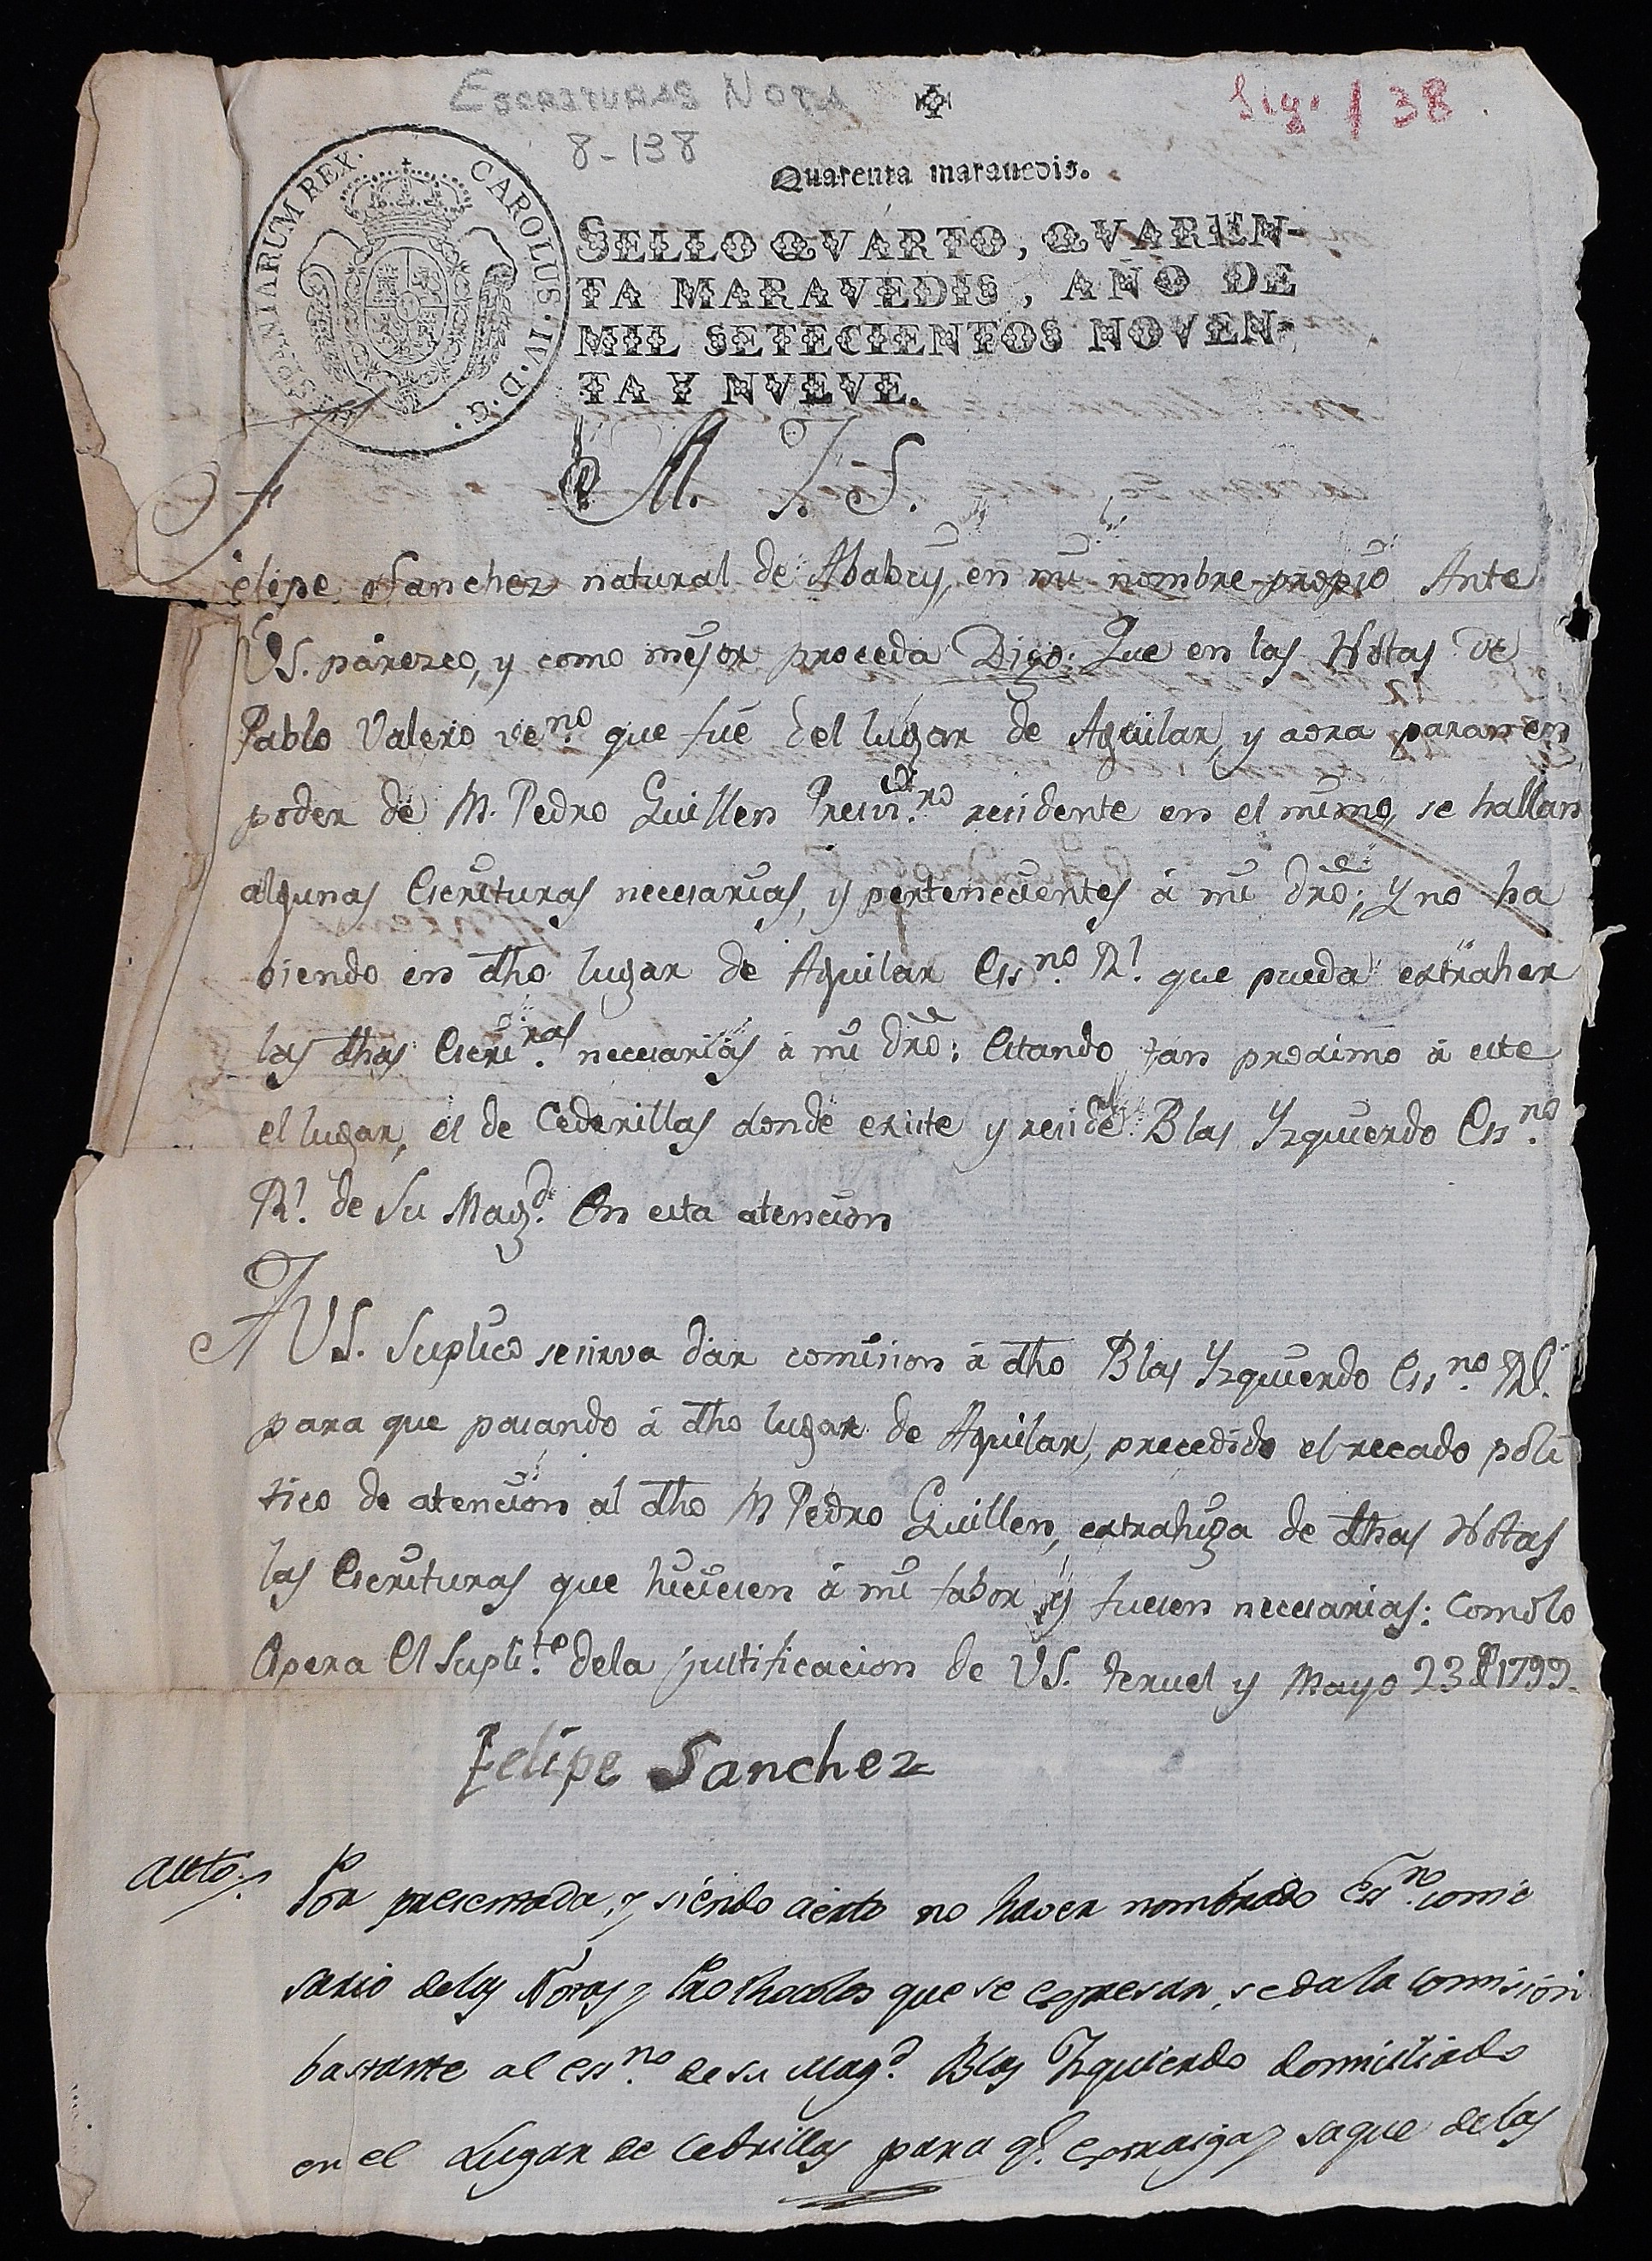 ESCRITURAS NOTA
Sig. / 38
8-138
Quarenta maravedis.
HISPANIARUM REX. CAROLUS. IV. D. G.
SELLO QVARTO, QVAREN-
TA MARAVEDIS, AÑO DE
MIL SETECIENTOS NOVEN-
TA Y NVEVE.
M. I. S.
Felipe Sanchez natural de Ababuy, en mi nombre propio Ante
VS. parezco, y como mejor proceda Digo: Que en las Notas de
Pablo Valero ve.no que fue del lugar de Aguilar, y aora paran en
poder de M. Pedro Guillen Presvi.tro residente en el mismo, se hallan
algunas Escrituras necesarias, y pertenecientes á mi dro; Y no ha
viendo en dho lugar de Aguilar Ess.no R.l que pueda extraher
las dhas Escri.ras necesarias á mi dro: Estando tan proximo á este
el lugar, el de Cederillas donde existe y reside Blas Yzquierdo Ess.no
R.l de Su Mag.d En esta atencion
A VS. Suplico se sirva dar comision á dho Blas Yzquierdo Ess.no Rl.
para que pasando á dho lugar de Aguilar, precedido el recado poli
tico de atencion al dho M Pedro Guillen, extrahiga de dhas Notas
las Escrituras que hiciesen á mi fabor y fuesen necesarias: Como lo
Espera El Supli.te de la justificacion de VS. Teruel y Mayo 23 de 1799.
Felipe Sanchez
Auto. Por presentada, y siendo cierto no haver nombrado Ess.no comi
sario de las Notas y Prothocolos que se expresan, se da la comision
bastante al ess.no de su Mag.d Blas Yzquierdo domiciliado
en el Lugar de Cedrillas para q.e extraiga y saque de las